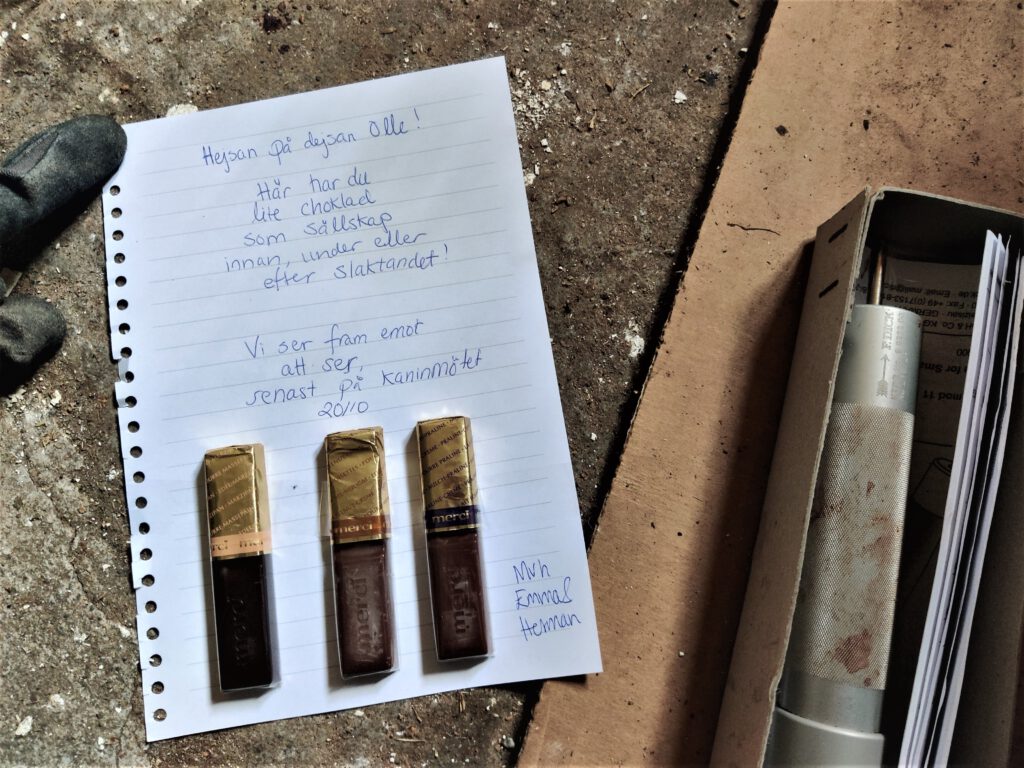 Hejsan på dejsan Olle!
Här har du
lite choklad
som sällskap
innan, under eller
efter slaktandet!
Vi ser fram emot
att ses,
senast på kaninmötet
20/10
merci
merci
merci
merci
merci
Mvh
Emma &
Herman